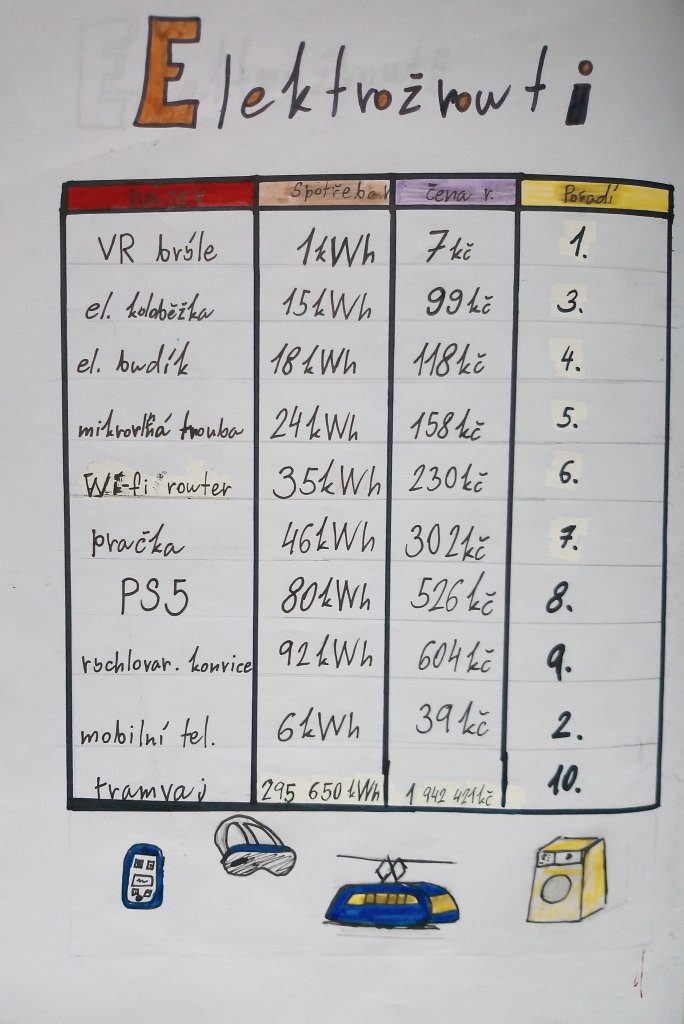 Elektrožrouti
název Spotřeba r. Cena r. Pořadí
VR brýle 1kWh 7kč 1.
el. koloběžka 15kWh 99kč 3.
el. budík 18kWh 118kč 4.
mikrovlná trouba 24kWh 158kč 5.
Wi-fi router 35kWh 230kč 6.
pračka 46kWh 302kč 7.
PS5 80kWh 526kč 8.
rychlovar. konvice 92kWh 604kč 9.
mobilní tel. 6kWh 39kč 2.
tramvaj 295 650kWh 1 942 421kč 10.